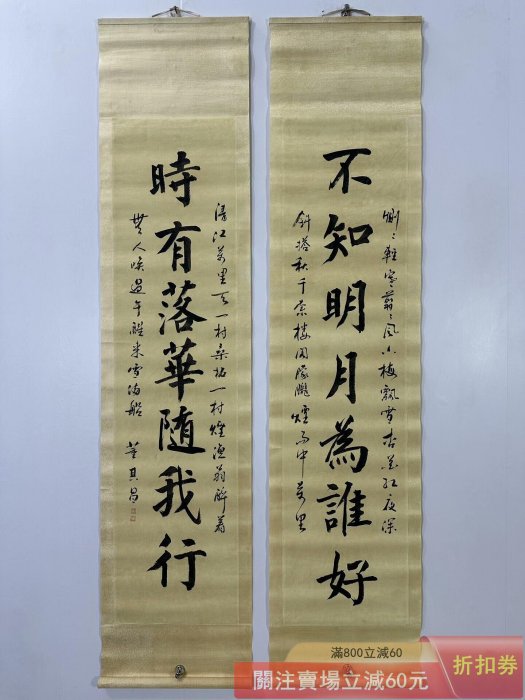 不知明月為誰好
惻〻輕寒翦〻風小梅飄雪杏花紅夜深
斜搭秋千索樓閣朦朧煙雨中萬里
時有落華隨我行
清江萬里天一村桑柘一村煙漁翁醉着
無人喚過午醒來雪滿船 董其昌
滿800立減60
關注賣場立減60元
折扣券